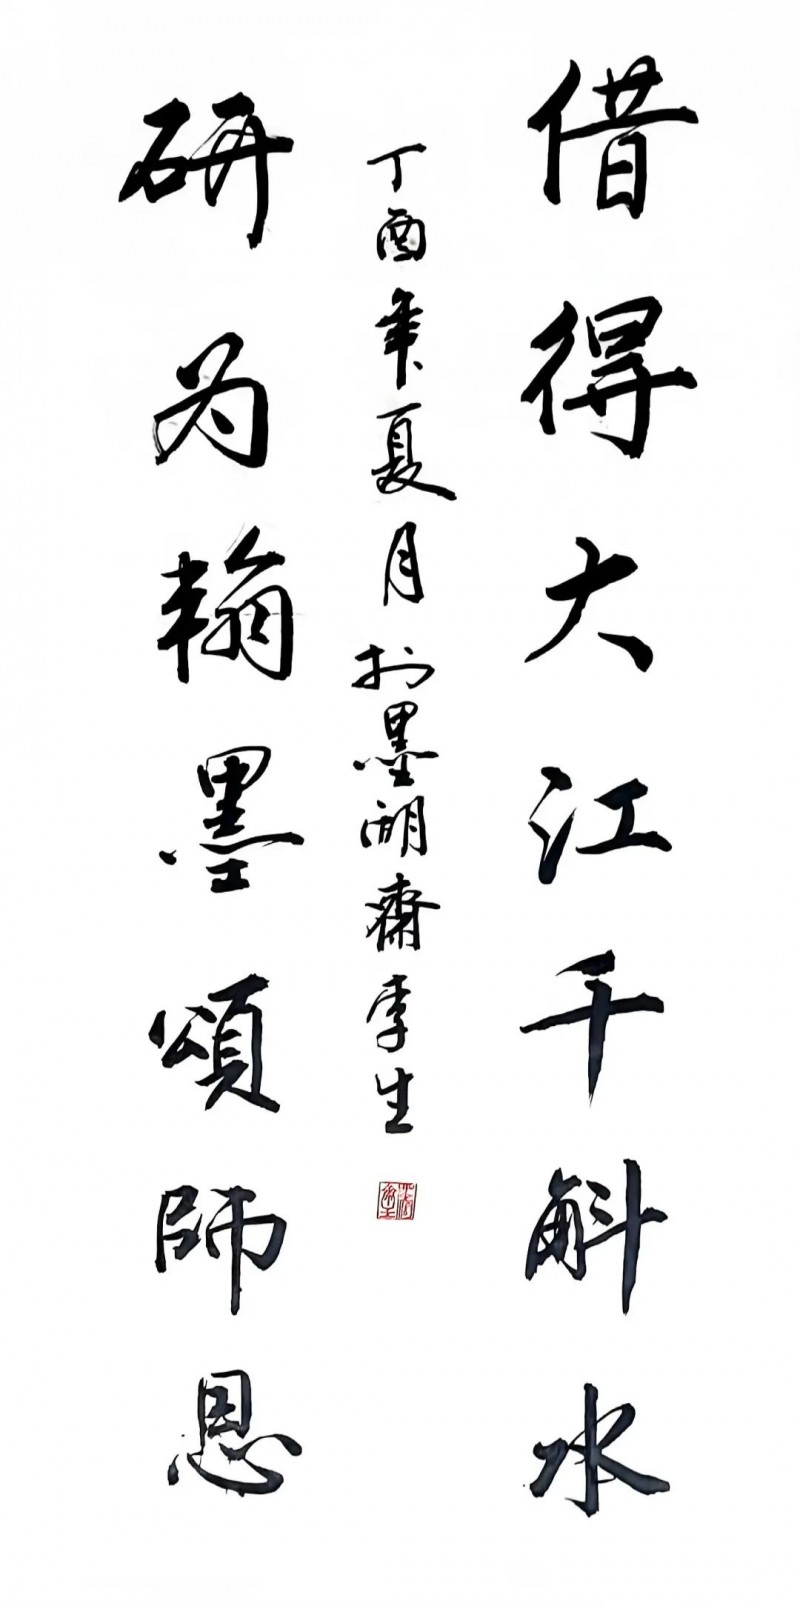 借得大江千斛水
研为翰墨頌師恩
丁酉年夏月于墨湖齋李生